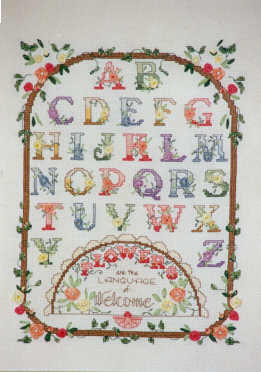 A B
C D E F G
H I J K L M
N O P Q R S
T U V W X
Y Z
FLOWERS
are the
LANGUAGE
of
Welcome